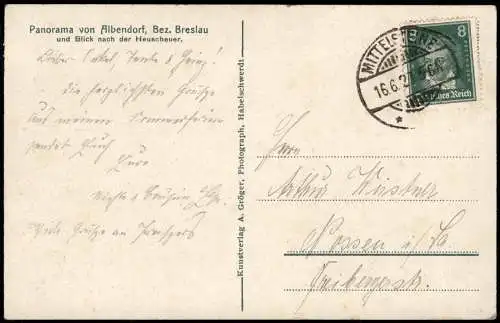 Panorama von Albendorf, Bez. Breslau
und Blick nach der Heuscheuer.
Lieber Onkel, Tante & Heinz!
die herzlichsten Grüße
aus meiner Sommerfrische
sendet Euch
Eure
Nichte & Cousine
Viele Grüße an
Kunstverlag A. Gröger, Photograph, Habelschwerdt
MITTELSTEINE
16.6.2
8
Deutsches Reich
Herrn
Arthur Wüstner
Nossen i/Sa.
Freibergerstr.